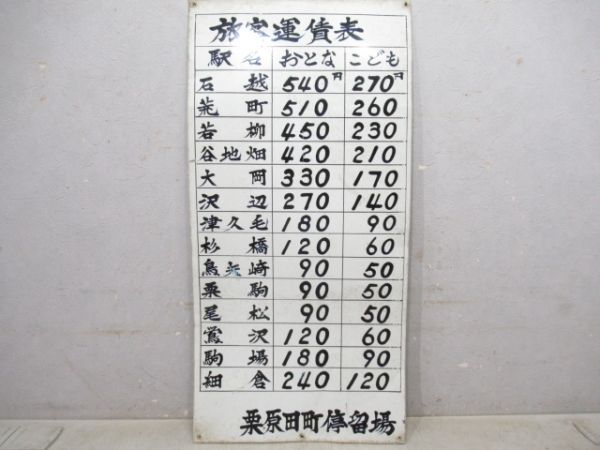 旅客運賃表
駅名 おとな こども
石越 540円 270円
荒町 510 260
若柳 450 230
谷地畑 420 210
大岡 330 170
沢辺 270 140
津久毛 180 90
杉橋 120 60
鳥矢崎 90 50
栗駒 90 50
尾松 90 50
鶯沢 120 60
駒場 180 90
細倉 240 120
栗原田町停留場